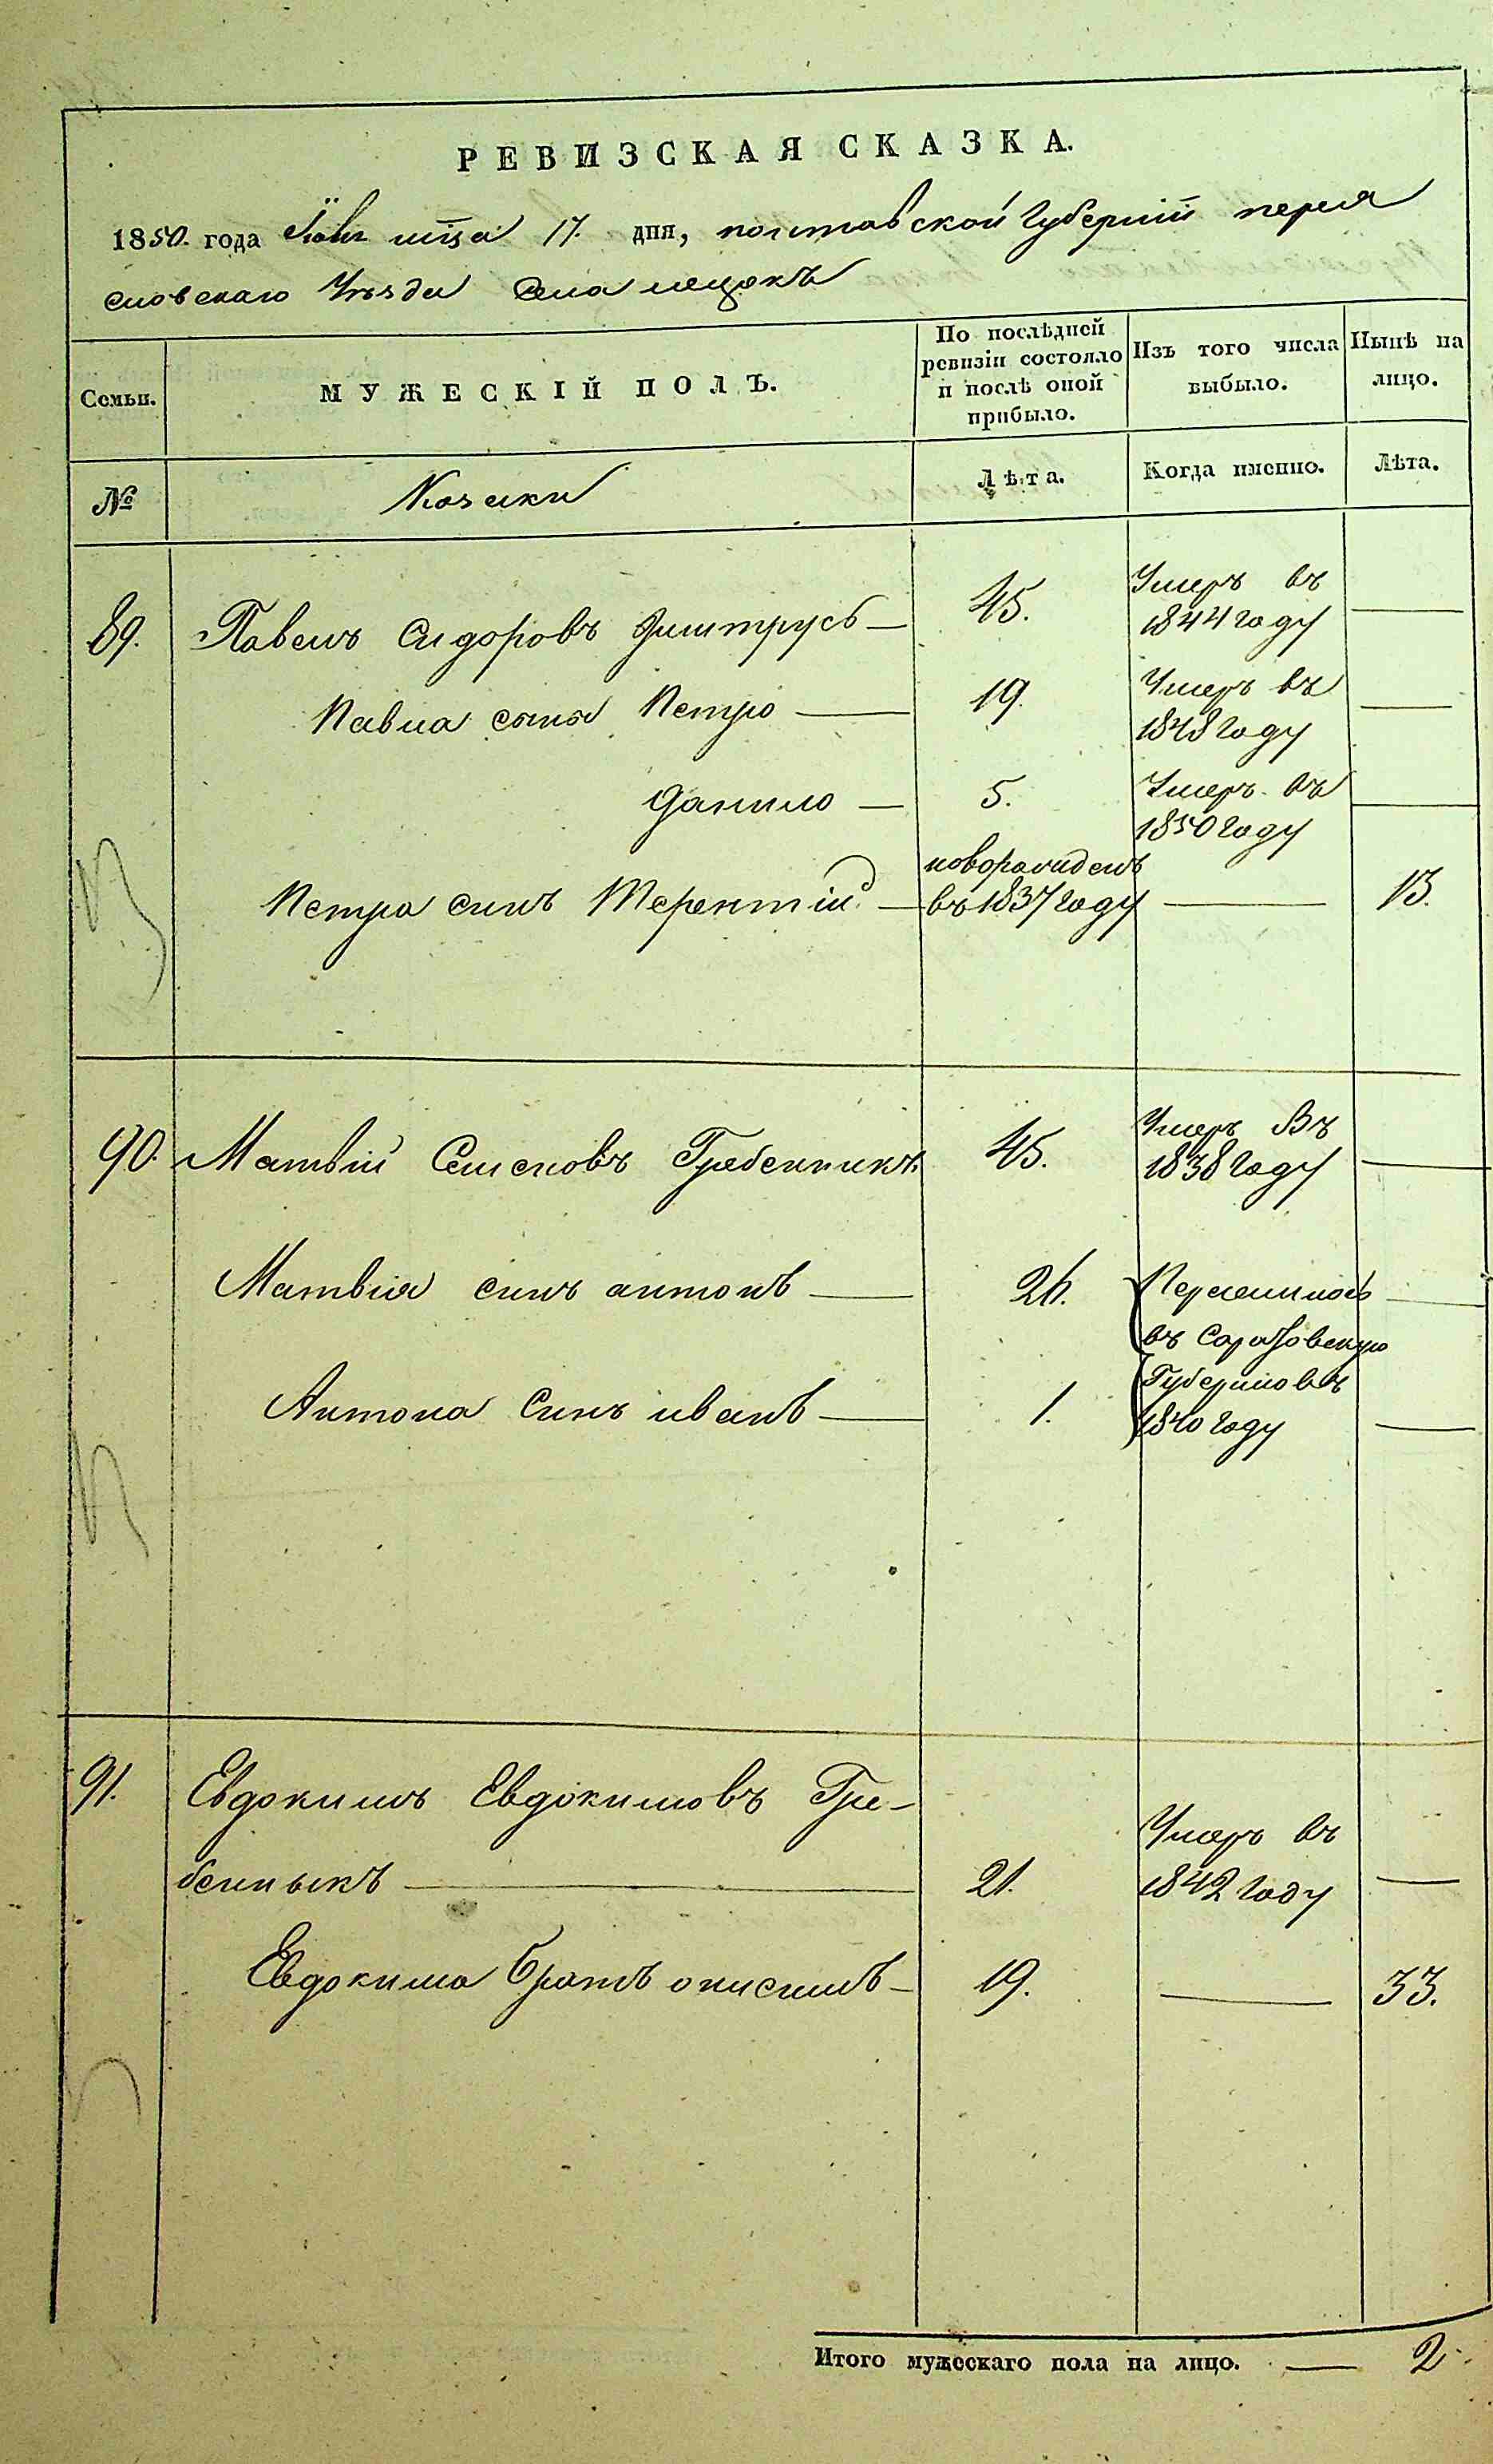 РЕВИЗСКАЯ СКАЗКА.
1850. года мца 17. дня, полтавской Губерній перея
словскаго Уѣзда Села лецокъ
Семьи.
МУЖЕСКІЙ ПОЛЪ.
По послѣдней ревизіи состояло и послѣ оной прибыло.
Изъ того числа выбыло.
Нынѣ на лицо.
№
Козаки
Лѣта.
Когда именно.
Лѣта.
89. Павелъ Сидоровъ Дмитрусь — 45. Умеръ въ 1844 году —
Павла сыны Петро — 19. Умеръ въ 1848 году —
Данило — 5. Умеръ въ 1850 году —
Петра синъ Терентій — новорожденъ въ 1837 году — 13.
90. Матвій Семеновъ Гребенникъ 45. Умеръ Въ 1838 году —
Матвія синъ антонъ — 26. Переселились —
въ Саратовскую
Антона Синъ иванъ — 1. Губернію въ 1840 году —
91. Евдокимъ Евдокимовъ Гре-
бенныкъ — 21. Умеръ въ 1842 году —
Евдокима братъ онисимъ — 19. — 33.
Итого мужескаго пола на лицо. — 2.